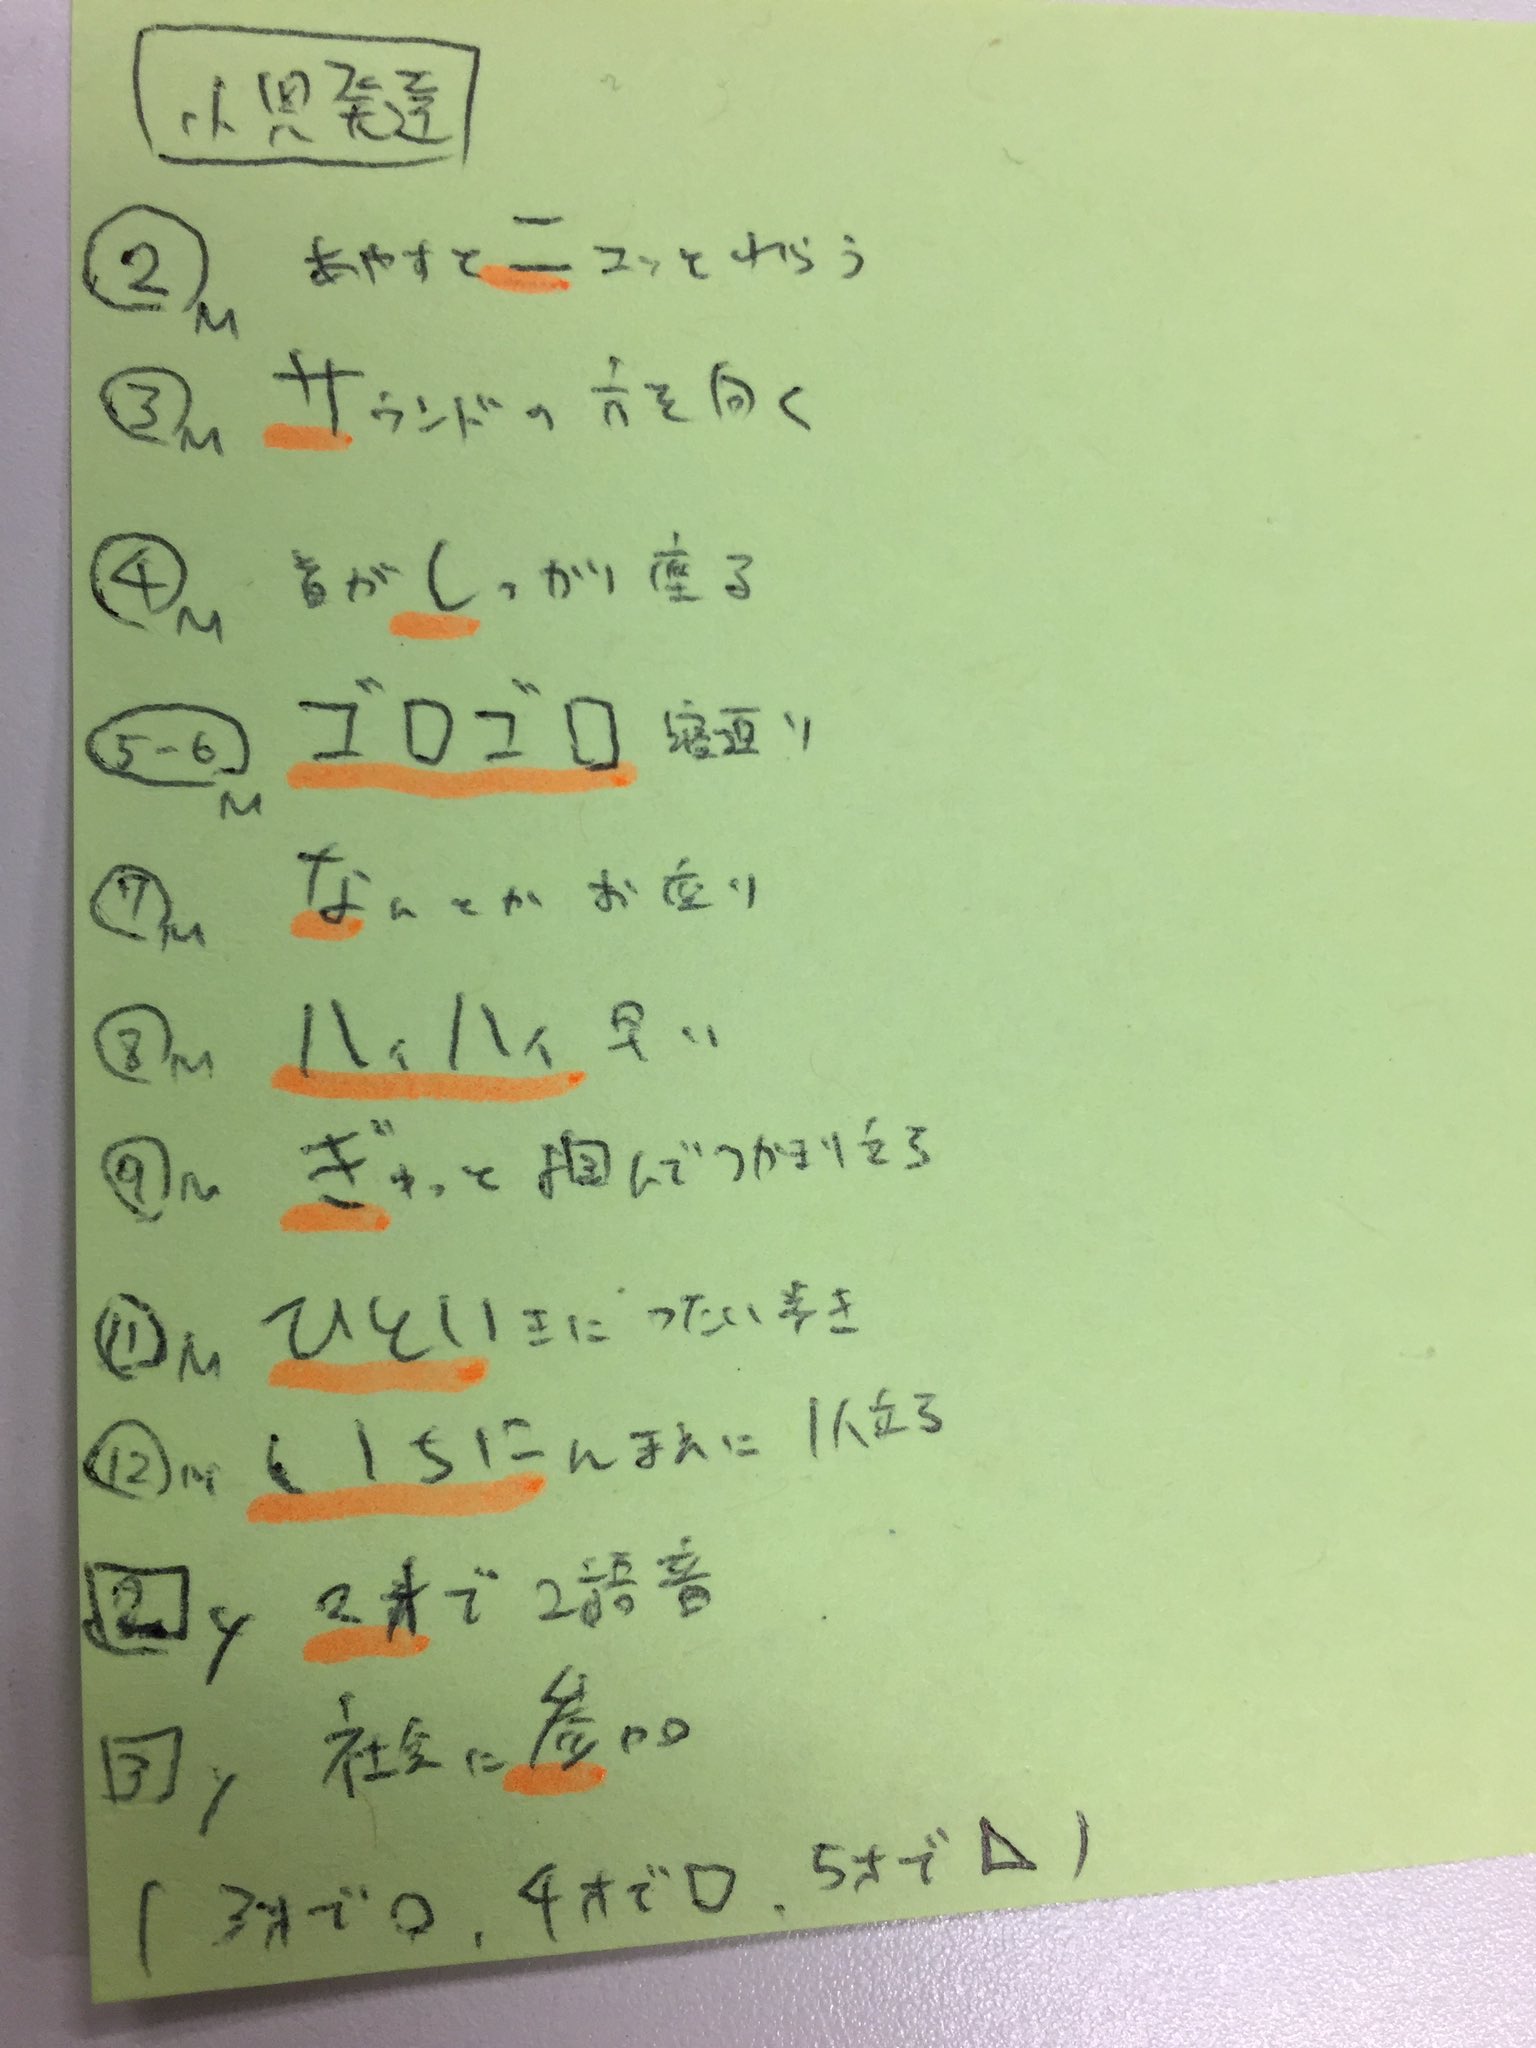 小児発達
②M あやすとニコッとわらう
③M サウンドの方を向く
④M 首がしっかり座る
⑤-⑥M ゴロゴロ寝返り
⑦M なんとかお座り
⑧M ハイハイ早い
⑨M ぎゅっと掴んでつかまり立ち
⑪M ひといきにつたい歩き
⑫M いちにんまえに1人立ち
2y 2才で2語
3y 社会に参加
(3才で○, 4才で□, 5才で△)